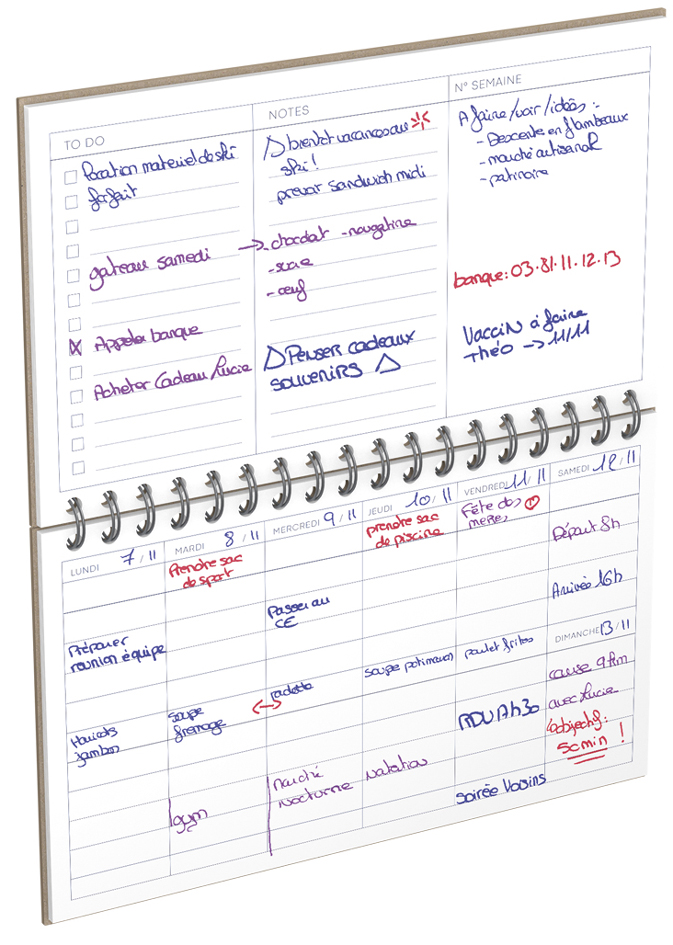 TO DO
location materiel de ski
forfait
gateau samedi
Appeler banque
Acheter Cadeau Lucie
NOTES
bientot vacances au
ski !
prévoir sandwich midi
→ chocolat - nougatine
- sucre
- œuf
Penser cadeaux
souvenirs
N° SEMAINE
A faire/voir/idées :
- Descente en flambeaux
- marché artisanal
- patinoire
banque: 03.81.11.12.13
Vaccin à faire
Théo → 11/11
LUNDI 7/11
Préparer
reunion équipe
Haricots
jambon
MARDI 8/11
Prendre sac
de sport
Soupe
fromage
gym
MERCREDI 9/11
Passer au
CE
raclette
marché
nocturne
JEUDI 10/11
prendre sac
de piscine
soupe potimarron
natation
VENDREDI 11/11
Fête des
mères
poulet frites
RDV
soirée Voisins
SAMEDI 12/11
Départ 8h
Arrivée 16h
DIMANCHE 13/11
course 9 km
avec Lucie
objectif:
50 min !